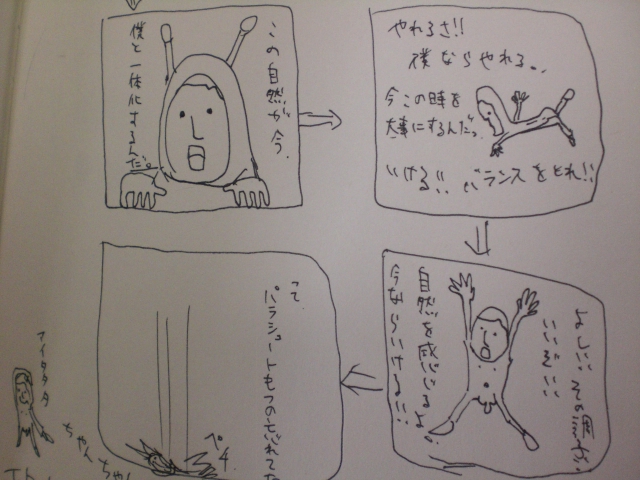 この自然が今、
僕と一体化するんだ。
やれるさ!!
僕ならやれる。、
今この時を
大事にするんだっ
いける!! バランスをとれ!!
よしい その調子。
いいぞいい
自然を感じいるよ。
今ならいける!!
って
パラシュートもつの忘れてた
ペチ
アイタタタ
ちゃんちゃん